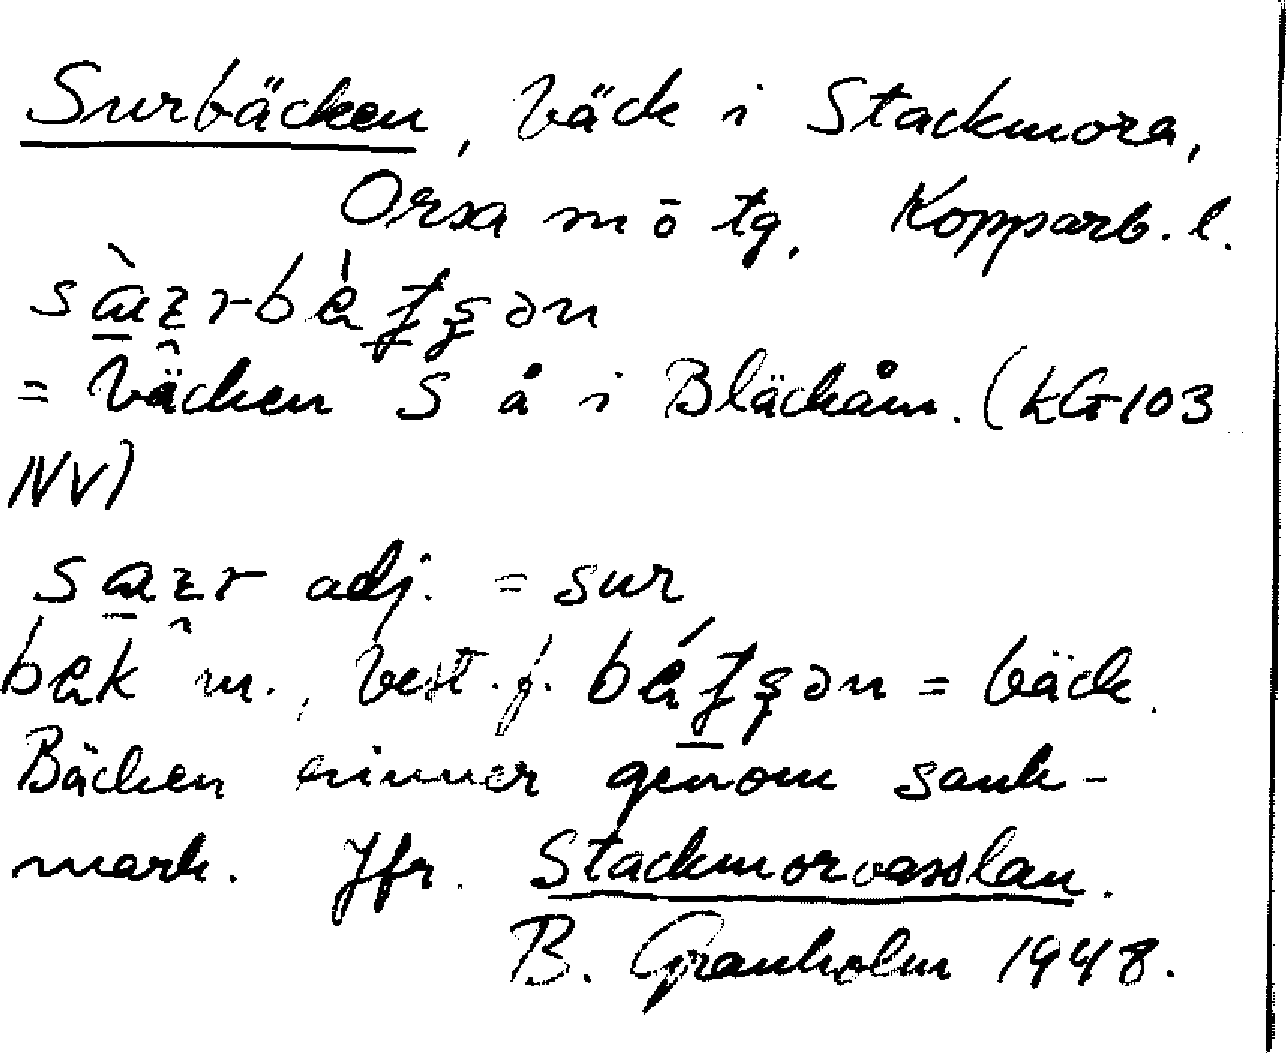 Surbäcken, bäck i Stackmora,
Orsa m ö tg, Kopparb. l.
= bäcken S å i Bläckåm. (kG-103
NV)
adj. = sur
m., best. f. = bäck.
Bäcken rinner genom sank-
mark. Jfr. Stackmorvasslan.
B. Granholm 1948.